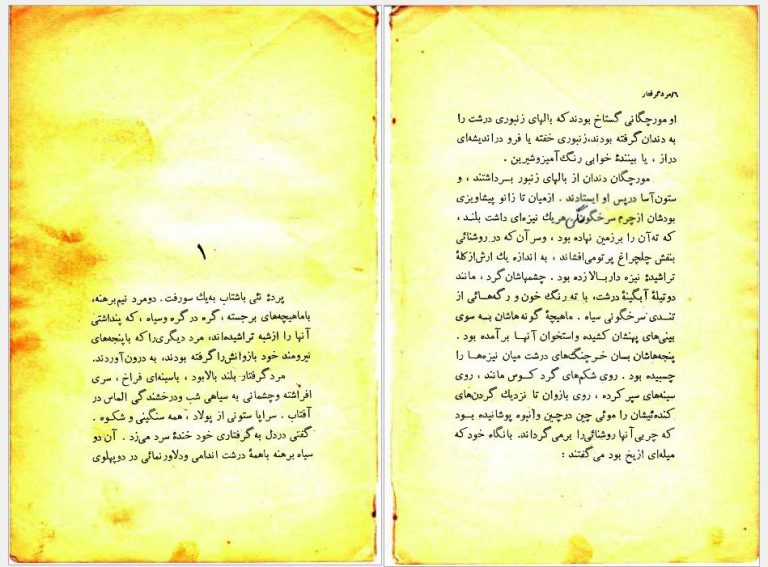 ۱
پردهٔ نئی باشتاب به‌یك سورفت. دومرد نیم‌برهنه،
باماهیچه‌های برجسته ، گره در گره وسیاه ، که پنداشتی
آنها را ازشبه تراشیده‌اند، مرد دیگری‌را که باپنجه‌های
نیرومند خود بازوانش‌را گرفته بودند، به درون‌آوردند.
مرد گرفتار، بلند بالابود ، باسینه‌ای فراخ ، سری
افراشته وچشمانی به سیاهی شب ودرخشندگی الماس در
آفتاب ، سراپا ستونی از پولاد ، همه سنگینی و شکوه .
گفتی دردل به‌گرفتاری خود خندهٔ سرد می‌زد . آن دو
سیاه برهنه باهمهٔ درشت اندامی ودلاورنمائی در دوپهلوی
۶/مرد گرفتار
او مورچگانی گستاخ بودند که بالهای زنبوری درشت را
به دندان گرفته بودند،زنبوری خفته یا فرو دراندیشه‌ای
دراز ، یا بینندهٔ خوابی رنگ‌آمیزوشیرین .
مورچگان دندان از بالهای زنبور بسرداشتند ، و
ستون‌آسا درپس او ایستادند . ازمیان تا زانو پیشاویزی
بودشان ازچرم سرخگون‌رنگی هریك نیزه‌ای داشت بلند ،
که ته‌آن را برزمین نهاده بود ، وسر آن که در روشنائی
بنفش چلچراغ پرتومی‌افشاند ، به اندازه یك ارش‌ازکلهٔ
تراشیدهٔ نیزه داربالازده بود . چشمهاشان گرد ، مانند
دوتیلهٔ آبگینهٔ درشت، با ته رنگ خون و رگه‌هـائی از
تندی سرخگونی سیاه . ماهیچهٔ گونه‌هاشان بـه سوی
بینی‌های پهنشان کشیده واستخوان آنهـا بر آمده بود .
پنجه‌هاشان بسان خـرچنگ‌های درشت میان نیزه‌هـا را
چسبیده بود . روی شکم‌های گرد کـوس مانند ، روی
سینه‌های سپر کرده ، روی بازوان تا نزدیك گردن‌های
کنده‌ئیشان را موئی چین درچین وانبوه پوشانیده بــود
که چربی‌آنها روشنائی‌را برمی‌گرداند. بانگاه خود که
میله‌ای ازیخ بود می‌گفتند :